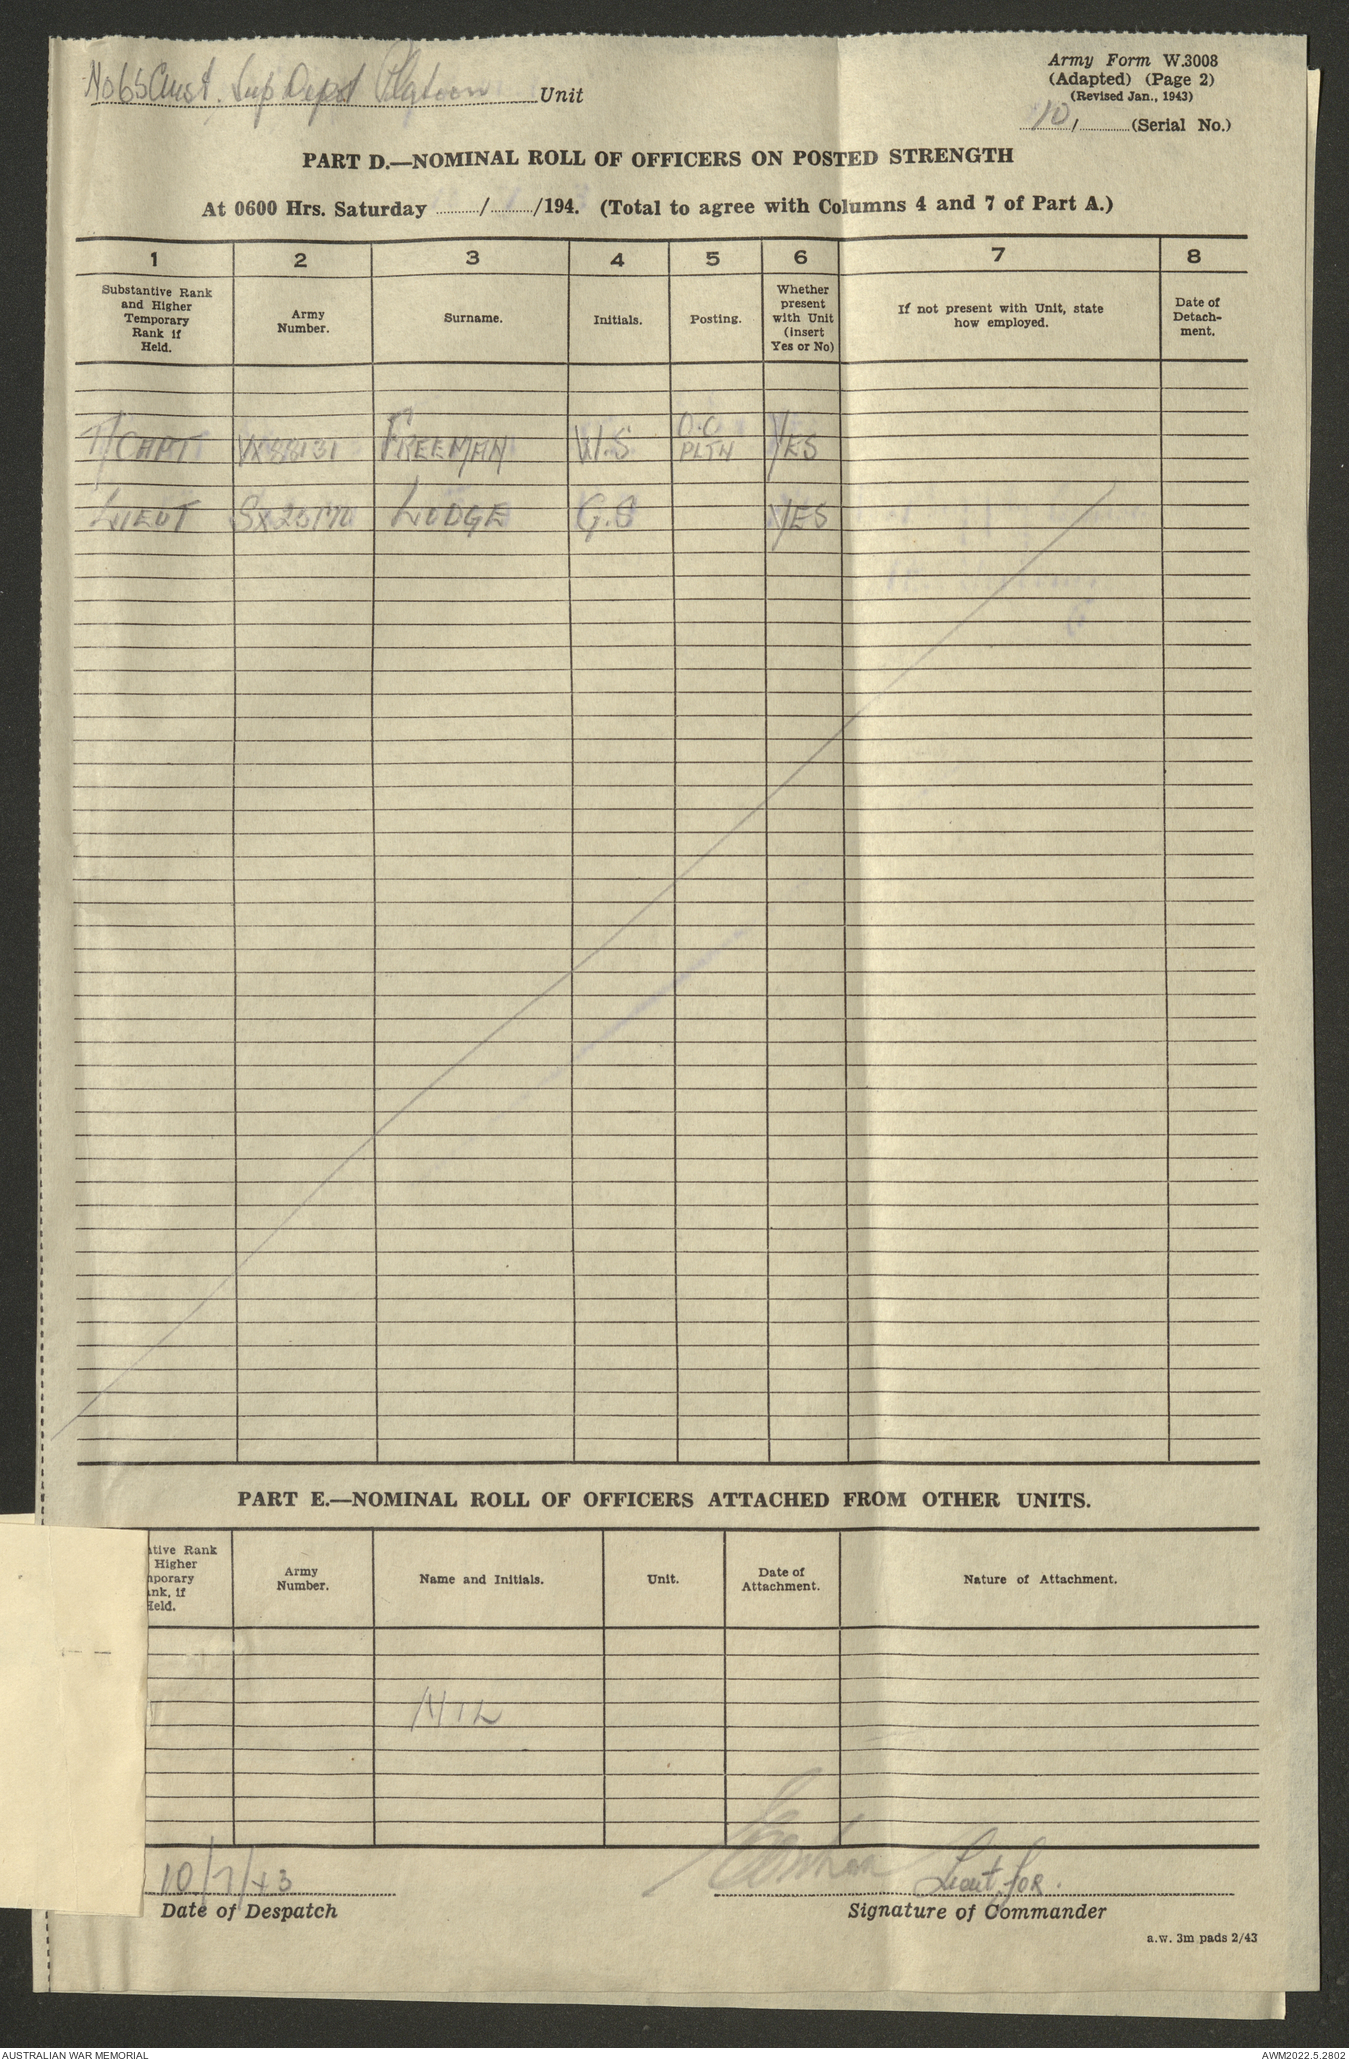 No 65 Aust. Sup Depot Platoon Unit
Army Form W.3008
(Adapted) (Page 2)
(Revised Jan., 1943)
10/ (Serial No.)
PART D.—NOMINAL ROLL OF OFFICERS ON POSTED STRENGTH
At 0600 Hrs. Saturday / /194. (Total to agree with Columns 4 and 7 of Part A.)
1 2 3 4 5 6 7 8
Substantive Rank and Higher Temporary Rank if Held.
Army Number.
Surname.
Initials.
Posting.
Whether present with Unit (insert Yes or No)
If not present with Unit, state how employed.
Date of Detach-ment.
T/CAPT VX88131 FREEMAN W.S O.C PLTN YES
LIEUT LODGE YES
PART E.—NOMINAL ROLL OF OFFICERS ATTACHED FROM OTHER UNITS.
tive Rank
Higher
porary
nk, if
Held.
Army Number.
Name and Initials.
Unit.
Date of Attachment.
Nature of Attachment.
NIL
10/7/43
Lieut, for.
Date of Despatch
Signature of Commander
a.w. 3m pads 2/43
AUSTRALIAN WAR MEMORIAL
AWM2022.5.2802